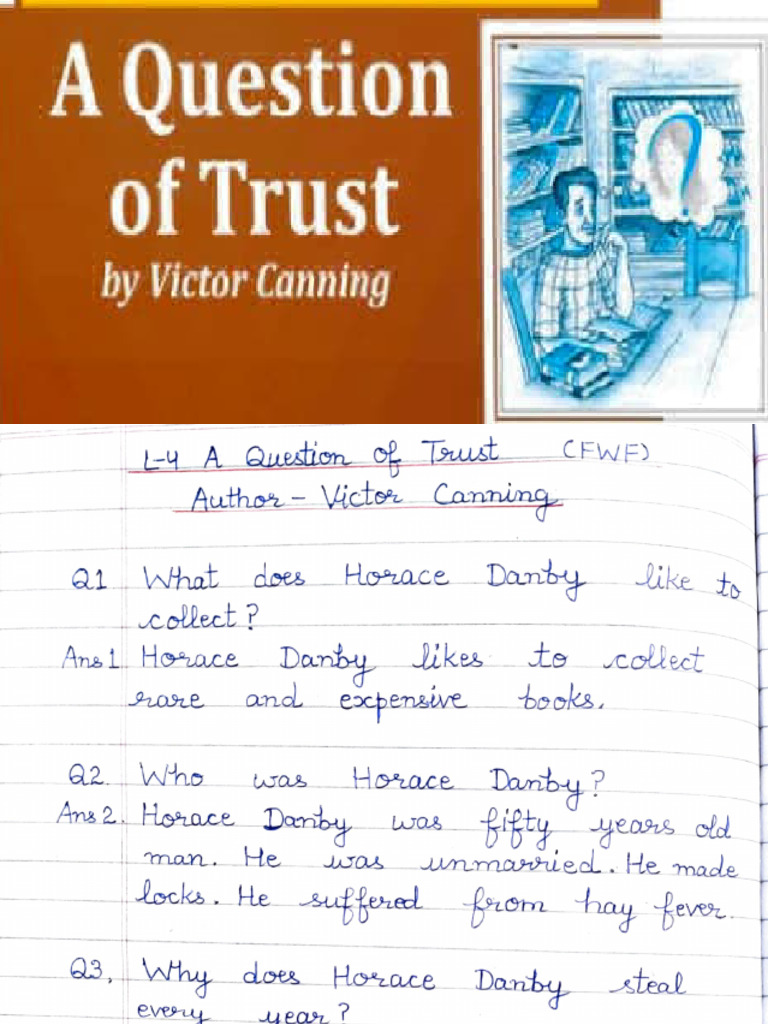 A Question
of Trust
by Victor Canning
L-4 A Question of Trust (FWF)
Author - Victor Canning
Q1 What does Horace Danby like to
collect?
Ans 1. Horace Danby likes to collect
rare and expensive books.
Q2. Who was Horace Danby?
Ans 2. Horace Danby was fifty years old
man. He was unmarried. He made
locks. He suffered from hay fever.
Q3, Why does Horace Danby steal
every year?